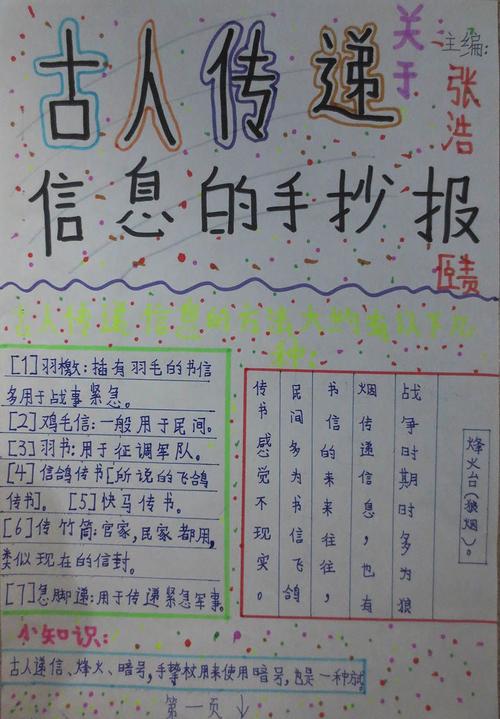 关于
古人传递
信息的手抄报
主编:
张浩
古人传递信息的方法大约有以下几
种:
[1]羽檄:插有羽毛的书信
多用于战事紧急。
[2]鸡毛信:一般用于民间。
[3]羽书:用于征调军队。
[4]信鸽传书[所说的飞鸽
传书]。[5]快马传书。
[6]传竹筒:官家,民家都用,
类似现在的信封。
[7]急脚递:用于传递紧急军事。
烽火台(狼烟)。
战争时期时多为狼
烟传递信息,也有
书信的来来往往,
民间多为书信飞鸽
传书感觉不现实。
小知识:
古人递信、烽火、暗号,手掌杖用来使用暗号,也是一种方式
第一页↓